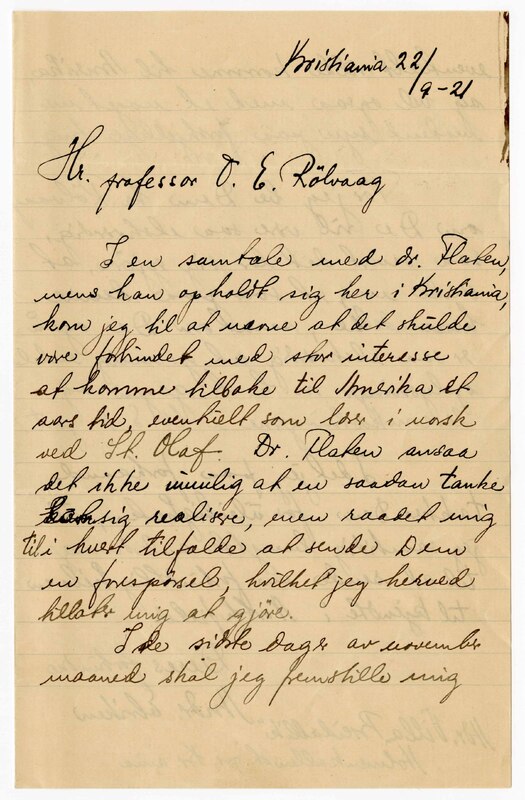 Kristiania 22/9-21
Hr. professor O. E. Rölvaag
I en samtale med dr. Flaten,
mens han opholdt sig her i Kristiania,
kom jeg til at nævne at det skulde
være forbundet med stor interesse
at komme tilbake til Amerika et
aars tid, eventuelt som lærer i norsk
ved St. Olaf. Dr. Flaten ansaa
det ikke umulig at en saadan tanke
sig realisere, men raadet mig
til i hvert tilfælde at sende Dem
en forespørsel, hvilket jeg herved
tillater mig at gjöre.
I de sidste dager av november
maaned skal jeg fremstille mig